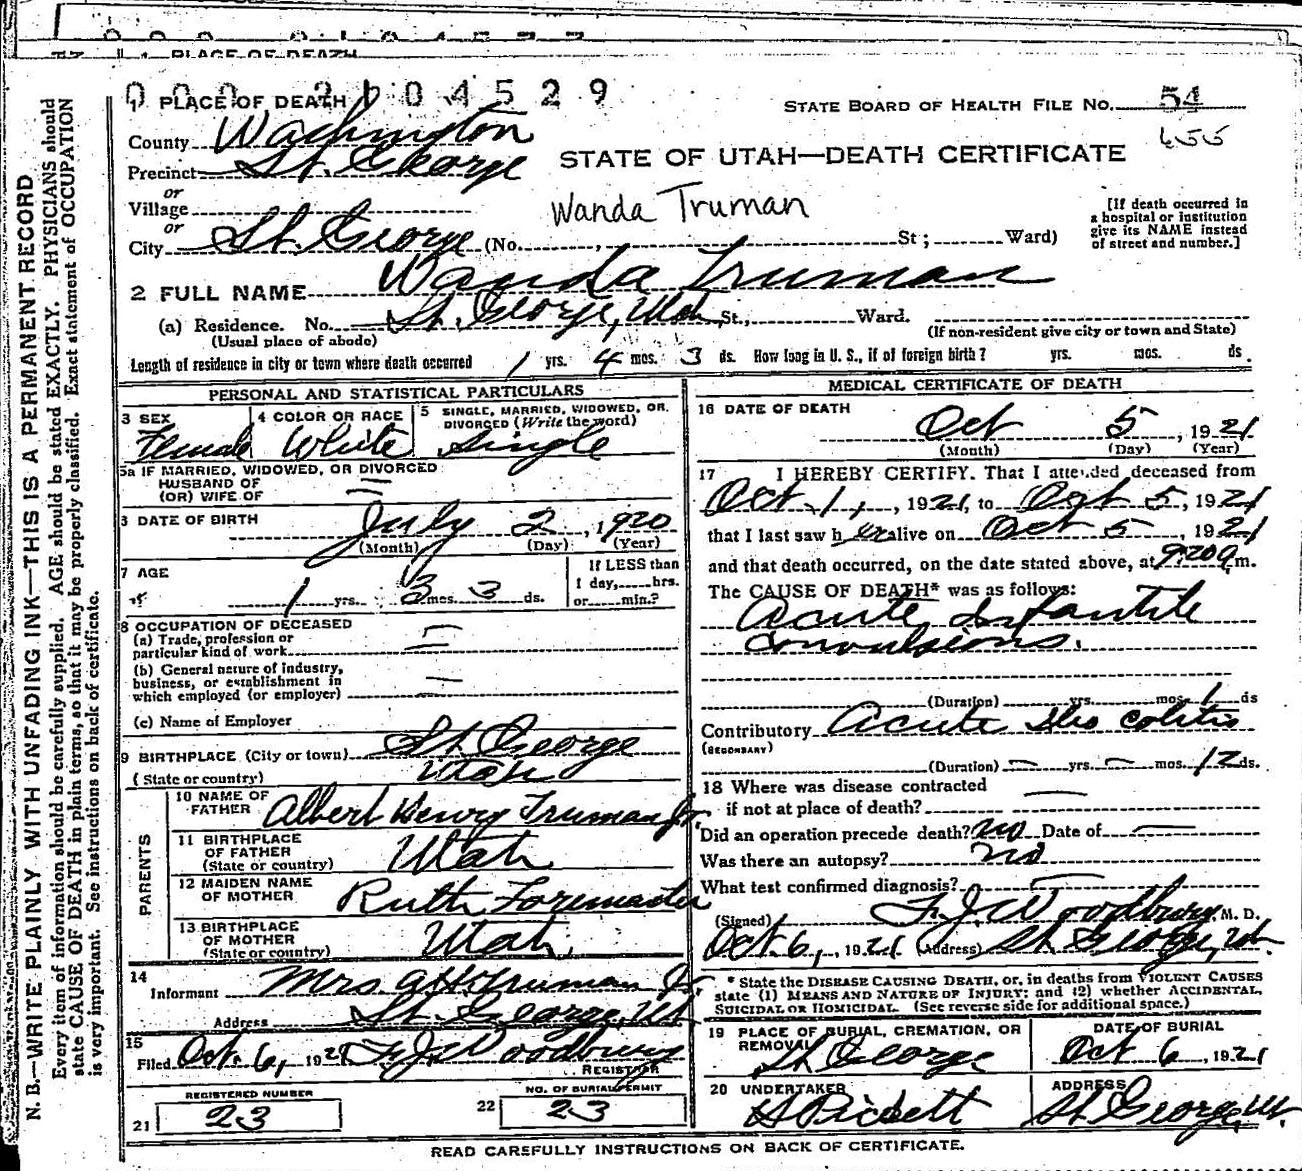 1 PLACE OF DEATH
0 0 0 2 1 0 4 5 2 9
STATE BOARD OF HEALTH FILE NO. 54
655
County Washington
Precinct St. George
STATE OF UTAH—DEATH CERTIFICATE
or
Village
Wanda Truman
or
City St. George (No. , St; Ward)
[If death occurred in
a hospital or institution
give its NAME instead
of street and number.]
2 FULL NAME Wanda Truman
(a) Residence. No. St. George, Utah St., Ward.
(Usual place of abode)
(If non-resident give city or town and State)
Length of residence in city or town where death occurred 1 yrs. 4 mos. 3 ds. How long in U. S., if of foreign birth? yrs. mos. ds.
PERSONAL AND STATISTICAL PARTICULARS
3 SEX Female
4 COLOR OR RACE White
5 SINGLE, MARRIED, WIDOWED, OR.
DIVORCED (Write the word)
Single
5a IF MARRIED, WIDOWED, OR DIVORCED
HUSBAND OF
(OR) WIFE OF
DATE OF BIRTH July 2, 1920
(Month) (Day) (Year)
7 AGE
1 yrs. 3 mos. 3 ds.
If LESS than
1 day, hrs.
or min.?
8 OCCUPATION OF DECEASED
(a) Trade, profession or
particular kind of work
(b) General nature of industry,
business, or establishment in
which employed (or employer)
(c) Name of Employer
9 BIRTHPLACE (City or town) St. George
(State or country) Utah
PARENTS
10 NAME OF
FATHER Albert Henry Truman Jr.
11 BIRTHPLACE
OF FATHER
(State or country) Utah
12 MAIDEN NAME
OF MOTHER Ruth Foremaster
13 BIRTHPLACE
OF MOTHER
(State or country) Utah.
14
Informant Mrs A H Truman Jr.
Address St. George, Ut.
15
Filed Oct. 6, 1921 F. J. Woodbury
REGISTRAR
REGISTERED NUMBER
21 23
NO. OF BURIAL PERMIT
22 23
MEDICAL CERTIFICATE OF DEATH
16 DATE OF DEATH
Oct 5, 1921
(Month) (Day) (Year)
17 I HEREBY CERTIFY. That I attended deceased from
Oct. 1, , 1921, to Oct 5, 1921
that I last saw h er alive on Oct 5, 1921
and that death occurred, on the date stated above, at 9:20 a m.
The CAUSE OF DEATH* was as follows:
Acute Infantile
Convulsions.
(Duration) yrs. mos. 1 ds
Contributory Acute Ileo colitis
(SECONDARY)
(Duration) yrs. mos. 12 ds.
18 Where was disease contracted
if not at place of death?
Did an operation precede death? no Date of
Was there an autopsy? no
What test confirmed diagnosis?
(Signed) F. J. Woodbury, M. D.
Oct. 6, , 1921 (Address) St George, Ut.
* State the DISEASE CAUSING DEATH, or, in deaths from VIOLENT CAUSES
state (1) MEANS AND NATURE OF INJURY: and (2) whether ACCIDENTAL,
SUICIDAL OR HOMICIDAL. (See reverse side for additional space.)
19 PLACE OF BURIAL, CREMATION, OR
REMOVAL St George
DATE OF BURIAL
Oct 6, 1921
20 UNDERTAKER
Pickett
ADDRESS
St. George, Ut.
READ CAREFULLY INSTRUCTIONS ON BACK OF CERTIFICATE.
N. B.—WRITE PLAINLY WITH UNFADING INK—THIS IS A PERMANENT RECORD
Every item of information should be carefully supplied. AGE should be stated EXACTLY. PHYSICIANS should
state CAUSE OF DEATH in plain terms, so that it may be properly classified. Exact statement of OCCUPATION
is very important. See instructions on back of certificate.